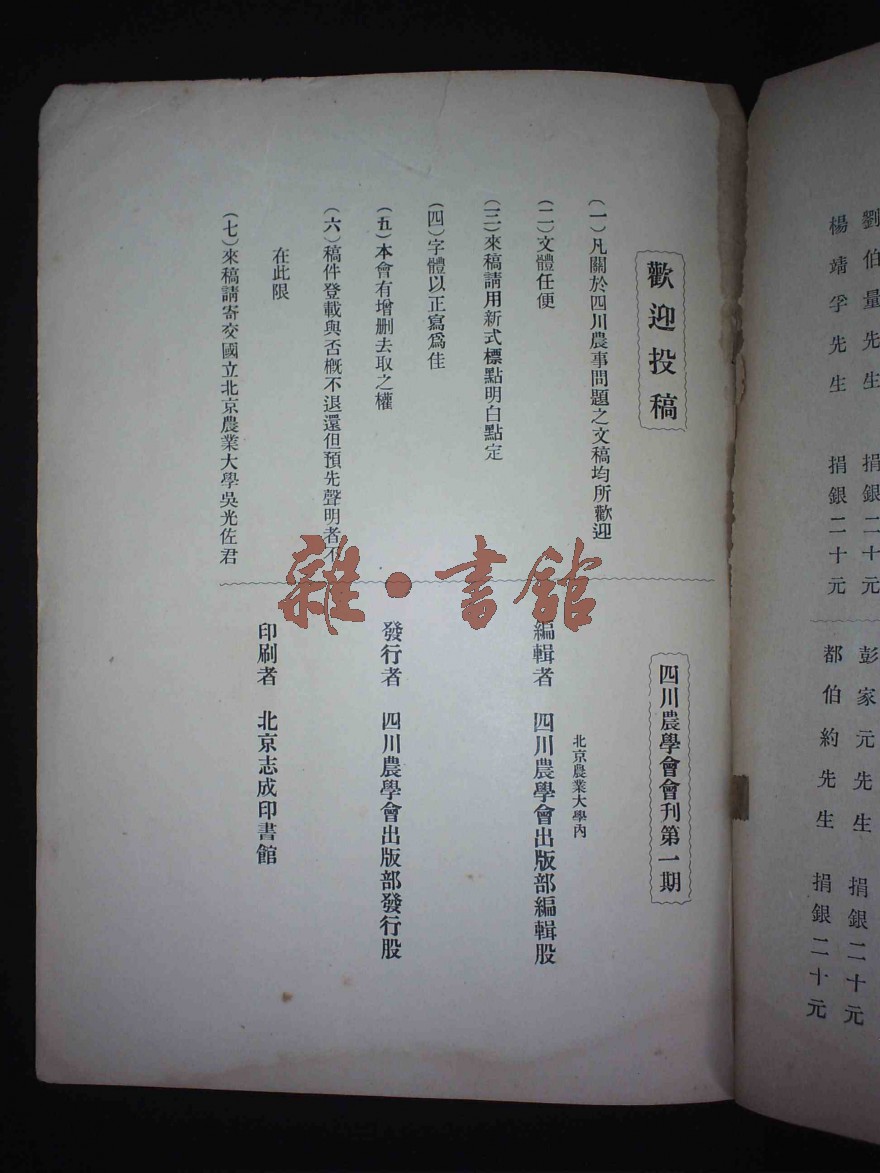 劉伯量先生　捐銀二十元
楊靖孚先生　捐銀二十元
彭家元先生　捐銀二十元
都伯約先生　捐銀二十元
歡迎投稿
(一)凡關於四川農事問題之文稿均所歡迎
(二)文體任便
(三)來稿請用新式標點明白點定
(四)字體以正寫爲佳
(五)本會有增删去取之權
(六)稿件登載與否概不退還但預先聲明者不
在此限
(七)來稿請寄交國立北京農業大學吳光佐君
四川農學會會刊第一期
北京農業大學內
編輯者　四川農學會出版部編輯股
發行者　四川農學會出版部發行股
印刷者　北京志成印書館
雜·書館